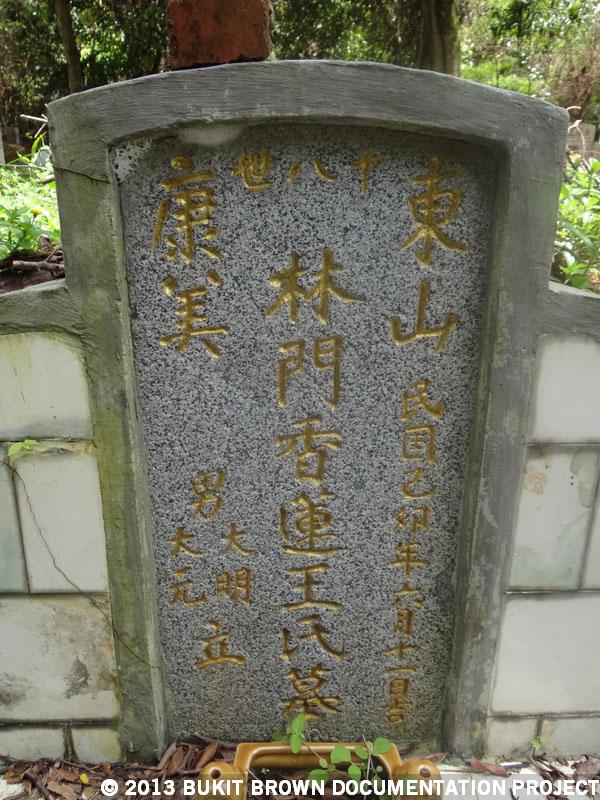 十八世
東山
民国己卯年六月十一日吉
林門香蓮王氏墓
康美
男
大明
大元
立
© 2013 BUKIT BROWN DOCUMENTATION PROJECT